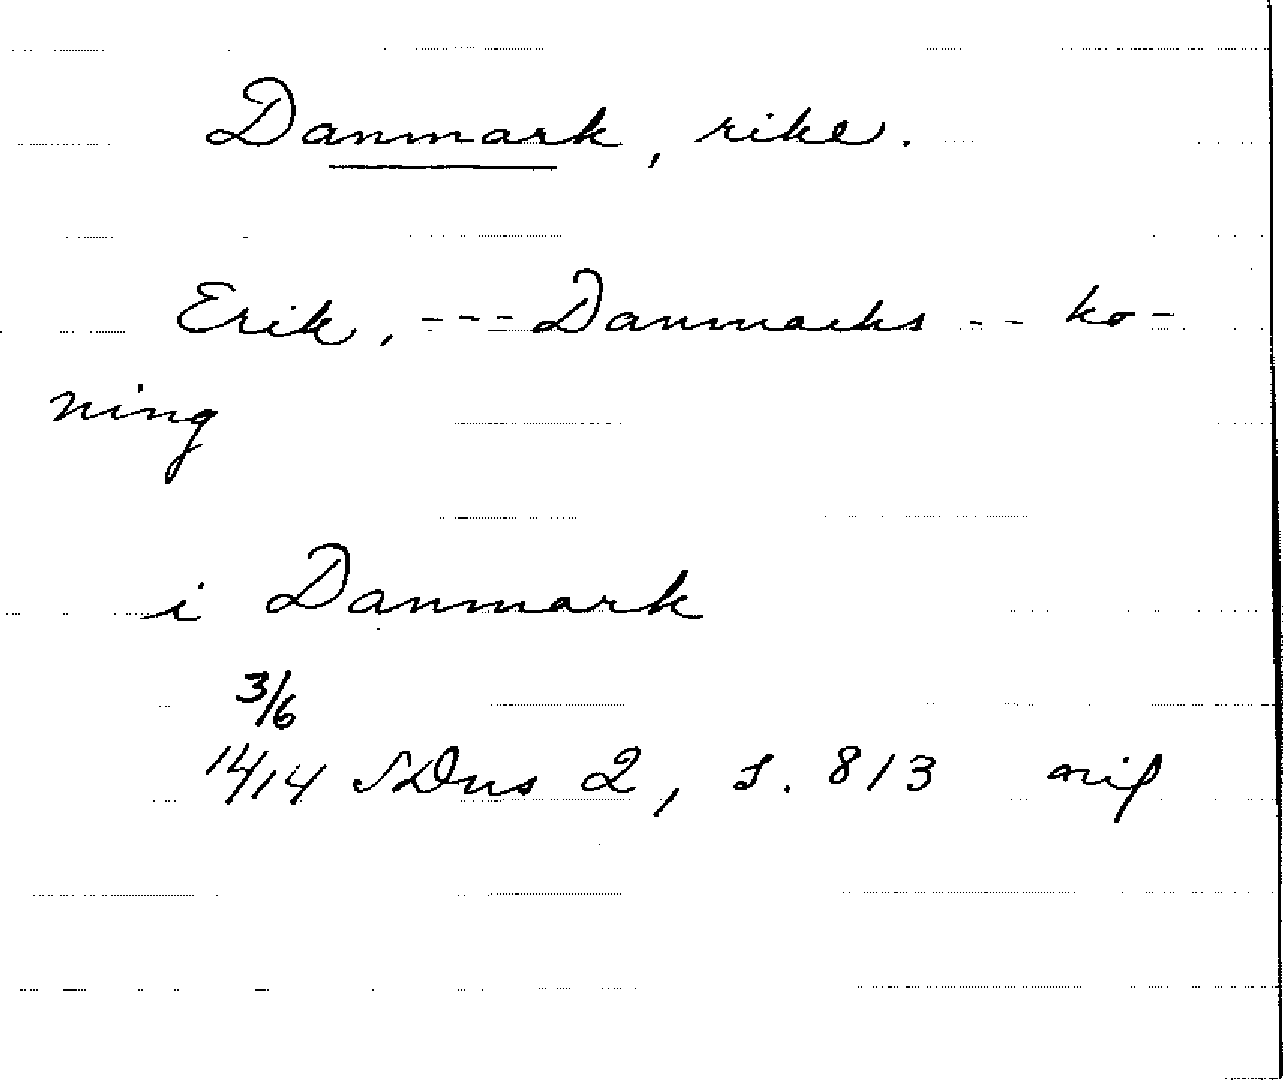 Danmark, rike.
Erik, --- Danmarks -- ko-
ning
i Danmark
3/6
14/14 SDns 2, s. 813 nif